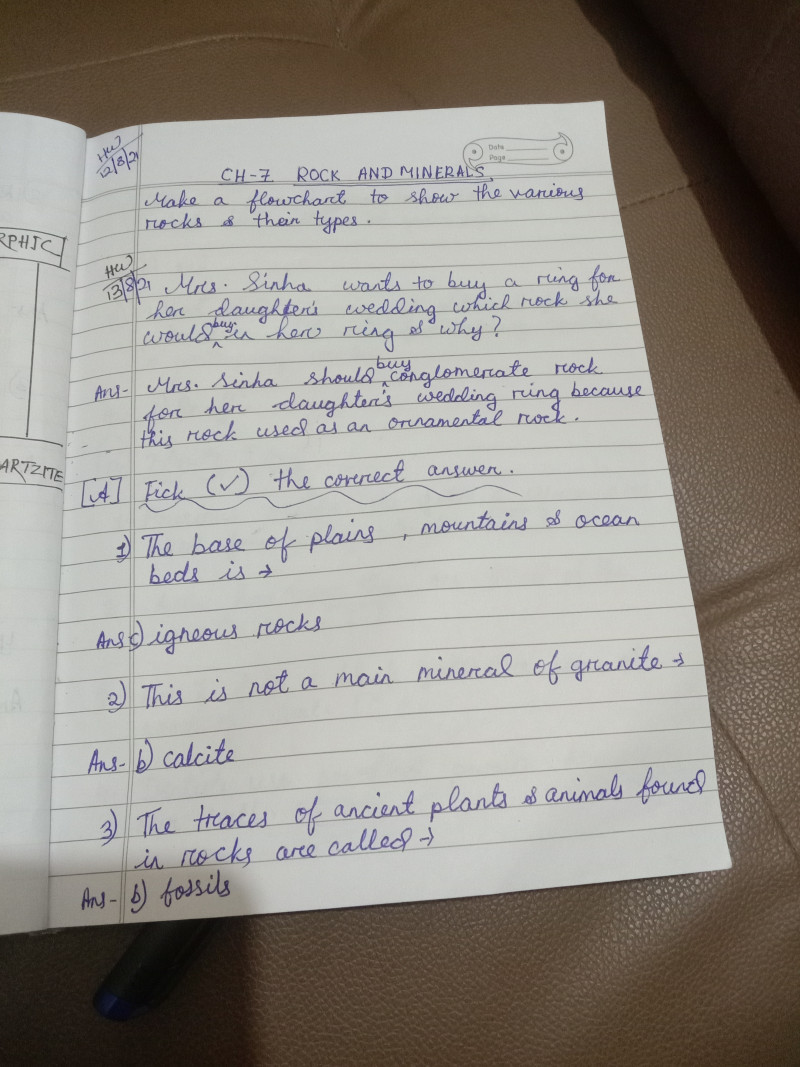 RPHIC
ARTZITE
HW
12/8/21
Date
Page
CH-7 ROCK AND MINERALS.
Make a flowchart to show the various
rocks & their types.
HW
13/8/21 Mrs. Sinha wants to buy a ring for
her daughter's wedding which rock she
would buy in her ring & why?
Ans- Mrs. Sinha should buy conglomerate rock
for her daughter's wedding ring because
this rock used as an ornamental rock.
[A] Tick (✓) the correct answer.
1) The base of plains, mountains & ocean
beds is →
Ans c) igneous rocks
2) This is not a main mineral of granite →
Ans- b) calcite
3) The traces of ancient plants & animals found
in rocks are called →
Ans- b) fossils